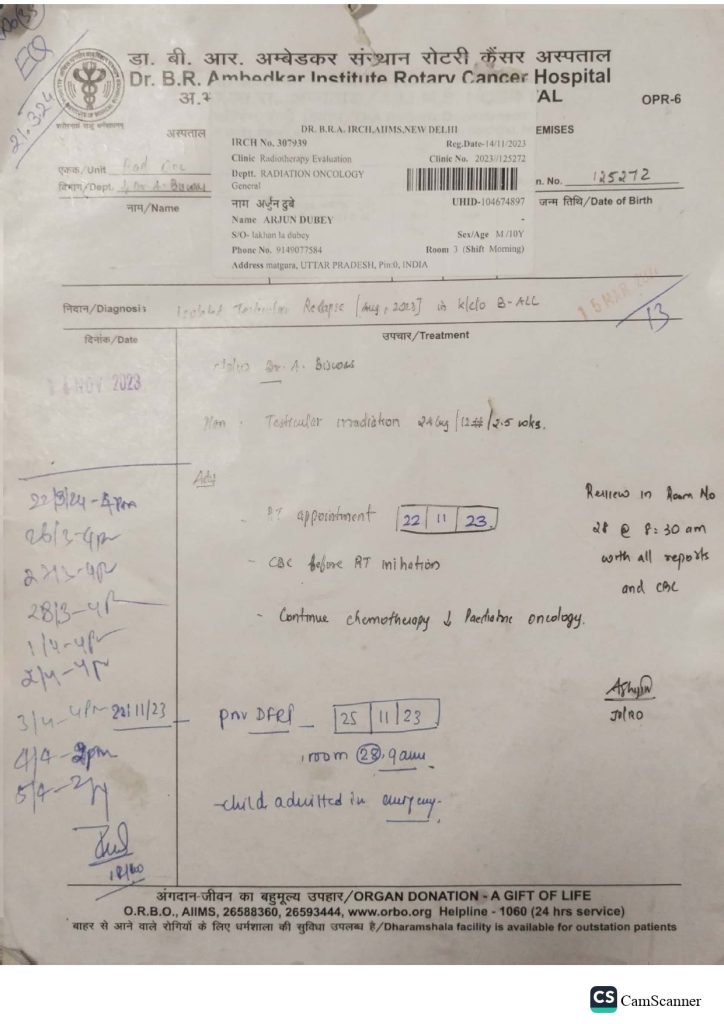 EQ
21.3.24
डा. बी. आर. अम्बेडकर संस्थान रोटरी कैंसर अस्पताल
Dr. B.R. Ambedkar Institute Rotary Cancer Hospital
अ.भ
AL
OPR-6
अस्पताल
EMISES
DR. B.R.A. IRCH,AIIMS,NEW DELHI
IRCH No. 307939 Reg.Date-14/11/2023
Clinic Radiotherapy Evaluation Clinic No. 2023//125272
Deptt. RADIATION ONCOLOGY
General
नाम अर्जुन दुबे UHID-104674897
Name ARJUN DUBEY -
S/O- lakhan la dubey Sex/Age M /10Y
Phone No. 9149077584 Room 3 (Shift Morning)
Address matgura, UTTAR PRADESH, Pin:0, INDIA
एकक/Unit Rad Onc
विभाग/Dept. Dr A. Biswas
n. No. 125272
नाम/Name
जन्म तिथि/Date of Birth
निदान/Diagnosis Isolated Testicular Relapse [Aug, 2023] in k/c/o B-ALL
15 MAR 202
13
दिनांक/Date
उपचार/Treatment
NOV 2023
Dr. A. Biswas
Plan : Testicular irradiation 24Gy/12#/2.5 wks.
Adv
- RT appointment 22 11 23
Review in Room No
28 @ 8:30 am
with all reports
and CBC
- CBC before RT initiation
- Continue chemotherapy ↓ Paediatric oncology.
JR/RO
22/3/24 - 4pm
26/3 - 4pm
27/3 - 4pm
28/3 - 4pm
1/4 - 4pm
2/4 - 4pm
3/4 - 4pm
4/4 - 2pm
5/4 - 2pm
22/11/23
25 11 23
room 28, 9am
- child admitted in emergency.
अंगदान-जीवन का बहुमूल्य उपहार/ORGAN DONATION - A GIFT OF LIFE
O.R.B.O., AIIMS, 26588360, 26593444, www.orbo.org Helpline - 1060 (24 hrs service)
बाहर से आने वाले रोगियों के लिए धर्मशाला की सुविधा उपलब्ध है/Dharamshala facility is available for outstation patients
CS CamScanner